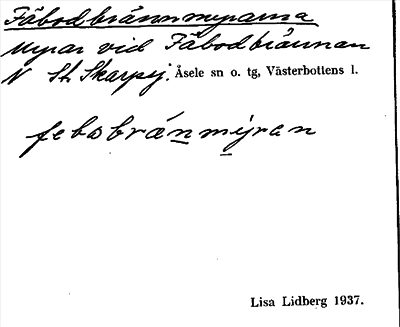 Fäbodbrännmyrarna
Myrar vid Fäbodbrännan
N St. Skarpsj. Åsele sn o. tg, Västerbottens l.
febobränmýran
Lisa Lidberg 1937.